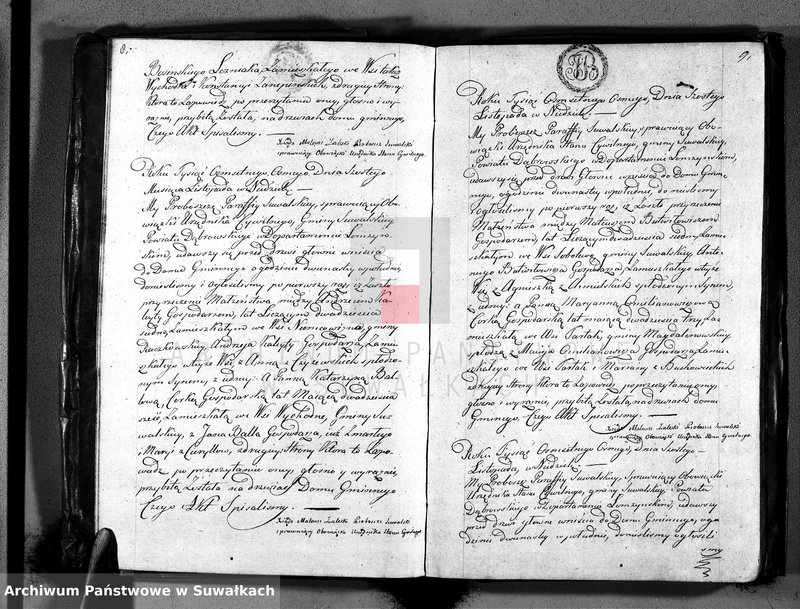 8.
Besinskiego Leźniaka Zamieszkałego we Wsi także
Wychodne i Konstancyi
która to Zapowiedź po przeczytaniu oney głośno i wy-
raźnie, przybitą Została, na drzwiach domu gminnego,
Czego Akt Spisaliśmy. —
Xiądz Mateusz Zaleski Proboszcz Suwalski
sprawuiący Obowiązki Urzędnika Stanu Cywilnego.
Roku Tysiąc Ośmsetnego Ósmego, Dnia Szóstego
Miesiąca Listopada w Niedzielę —
My Proboszcz Paraffii Suwalskiey, sprawuiący Obo-
wiązki Urzędnika Cywilnego, Gminy Suwalskiey
Powiatu Dąbrowskiego w Departamencie Łomżyń-
skim, udawszy się przed drzwi główne wniścia
do Domu Gminnego o godzinie dwunastey w południe,
donieśliśmy i Ogłosiliśmy po pierwszy raz, iż Zaszło
przyrzeczenie Małżeństwa, między Andrzeiem Ka-
letą Gospodarzem, lat Liczącym dwadzieścia
siedm, Zamieszkałym we Wsi Niemcowizna, gminy
Kuczkowskiey, Andrzeia Kalety Gospodarza, Zamie-
szkałego w teyże Wsi, z Anną z Czyżewskich spłodzo-
nym Synem, z iedney: a Panną Katarzyną Bal-
lową, Corką Gospodarską lat Maiącą dwadzieścia
sześć, Zamieszkałą we Wsi Wychodne, Gminy Su-
walskiey, z Jana Balla Gospodarza, iuż Zmarłego
i Maryi z Curyłłow, z drugiey Strony, Która to Zapo-
wiedź po przeczytaniu oney głośno y wyraźnie,
przybitą Została na drzwiach Domu Gminnego
Czego Akt Spisaliśmy. —
Xiądz Mateusz Zaleski Proboszcz Suwalski
sprawuiący Obowiązki Urzędnika Stanu Cywilnego
9.
Roku Tysiąc Ośmsetnego Ósmego, Dnia Szóstego
Listopada w Niedzielę. —
My Proboszcz Paraffii Suwalskiey, sprawuiący Obo-
wiązki Urzędnika Stanu Cywilnego, gminy Suwalskiey,
Powiatu Dąbrowskiego w Departamencie Łomżyńskim,
udawszy się przed drzwi Główne wniścia do Domu Gmin-
nego, o godzinie dwunastey w południe, donieśliśmy
i ogłosiliśmy po pierwszy raz, iż Zaszło przyrzeczenie
Małżeństwa między Mateuszem Butwiłowiczem
Gospodarzem, lat Liczącym dwadzieścia siedm, Zamie-
szkałym we Wsi Sobolewo, gminy Suwalskiey, Anto-
niego Butwiłowicza Gospodarza Zamieszkałego w teyże
Wsi, z Agnieszką z spłodzonym Synem,
z iedney: a Panną Maryanną Chrzcianowiczową
Corką Gospodarską lat maiącą dwadzieścia trzy Za-
mieszkałą we Wsi Tartak, gminy Magdalenowskiey
spłodzą z Macieja Chrzcianowicza Gospodarza Zamie-
szkałego we Wsi Tartak i Maryanny z Buchowieckich
z drugiey Strony Która to Zapowiedź, po przeczytaniu oney
głośno i wyraźnie, przybitą Została na drzwiach domu
Gminnego, Czego Akt Spisaliśmy. —
Xiądz Mateusz Zaleski Proboszcz Suwalski
sprawuiący Obowiązki Urzędnika Stanu Cywilnego
Roku Tysiąc Ośmsetnego Ósmego, Dnia Szóstego —
Listopada, w Niedzielę —
My Proboszcz Paraffii Suwalskiey, Sprawuiący Obowiązki
Urzędnika Stanu Cywilnego, gminy Suwalskiey, Powiatu
Dąbrowskiego w Departamencie Łomżyńskim, udawszy
przed drzwi główne wniścia do Domu Gminnego, o go-
dzinie dwunastey w południe, donieśliśmy y ogłosili
śmy
ARCHIWUM PAŃSTWOWE
W SUWAŁKACH
Archiwum Państwowe w Suwałkach